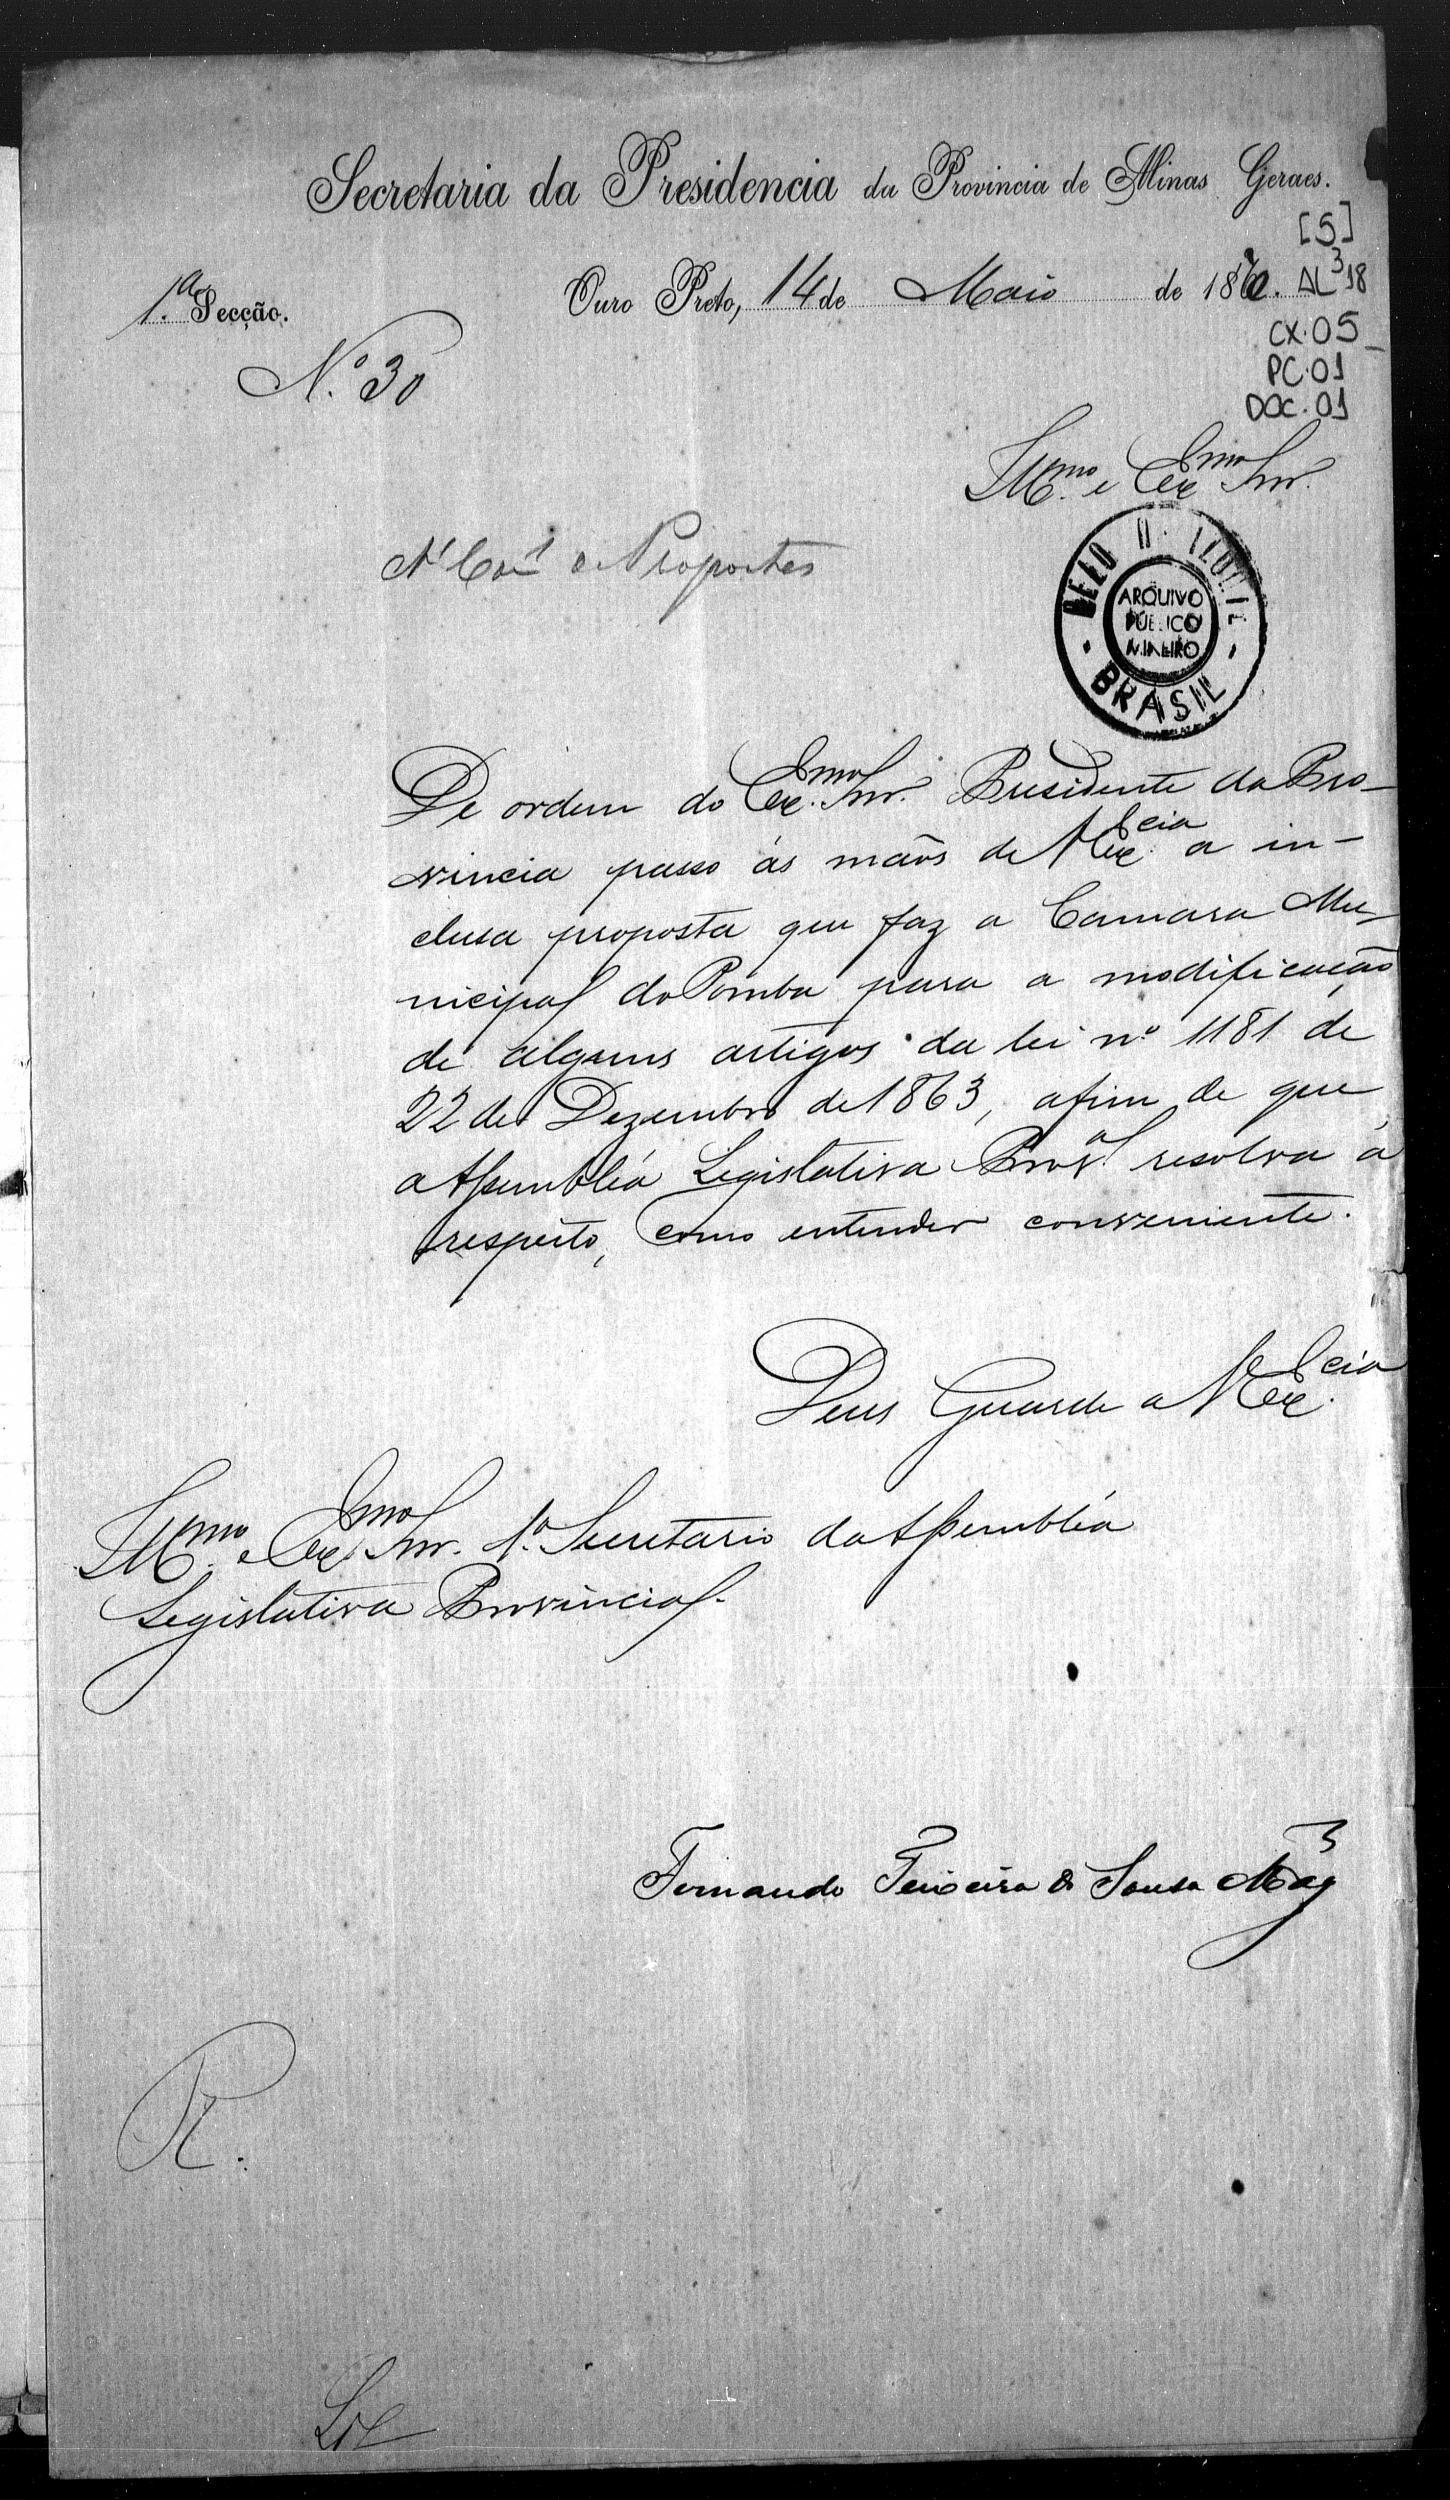 Secretaria da Presidencia da Provincia de Minas Geraes.
[5]
1.ª Secção. Ouro Preto, 14 de Maio de 1870. AL 3 18
CX.05
N.º 30
PC.01
DOC.01
Ill.mo e Ex.mo Snr.
BELO HORIZONTE
ARQUIVO
PÚBLICO
MINEIRO
BRASIL
De ordem do Ex.mo Snr. Presidente da Pro-
vincia passo ás mãos de V Ex.cia a in-
clusa proposta que faz a Camara Mu-
nicipal do Pomba para a modificação
de alguns artigos da lei nº 1181 de
22 de Dezembro de 1863, afim de que
a Assembléa Legislativa Prov.al resolva á
respeito, como entender conveniente.
Deus Guarde a V Ex.cia
Ill.mo e Ex.mo Snr. 1.º Secretario da Assembléa
Legislativa Provincial.
Fernando Teixeira de Sousa Mag
R.